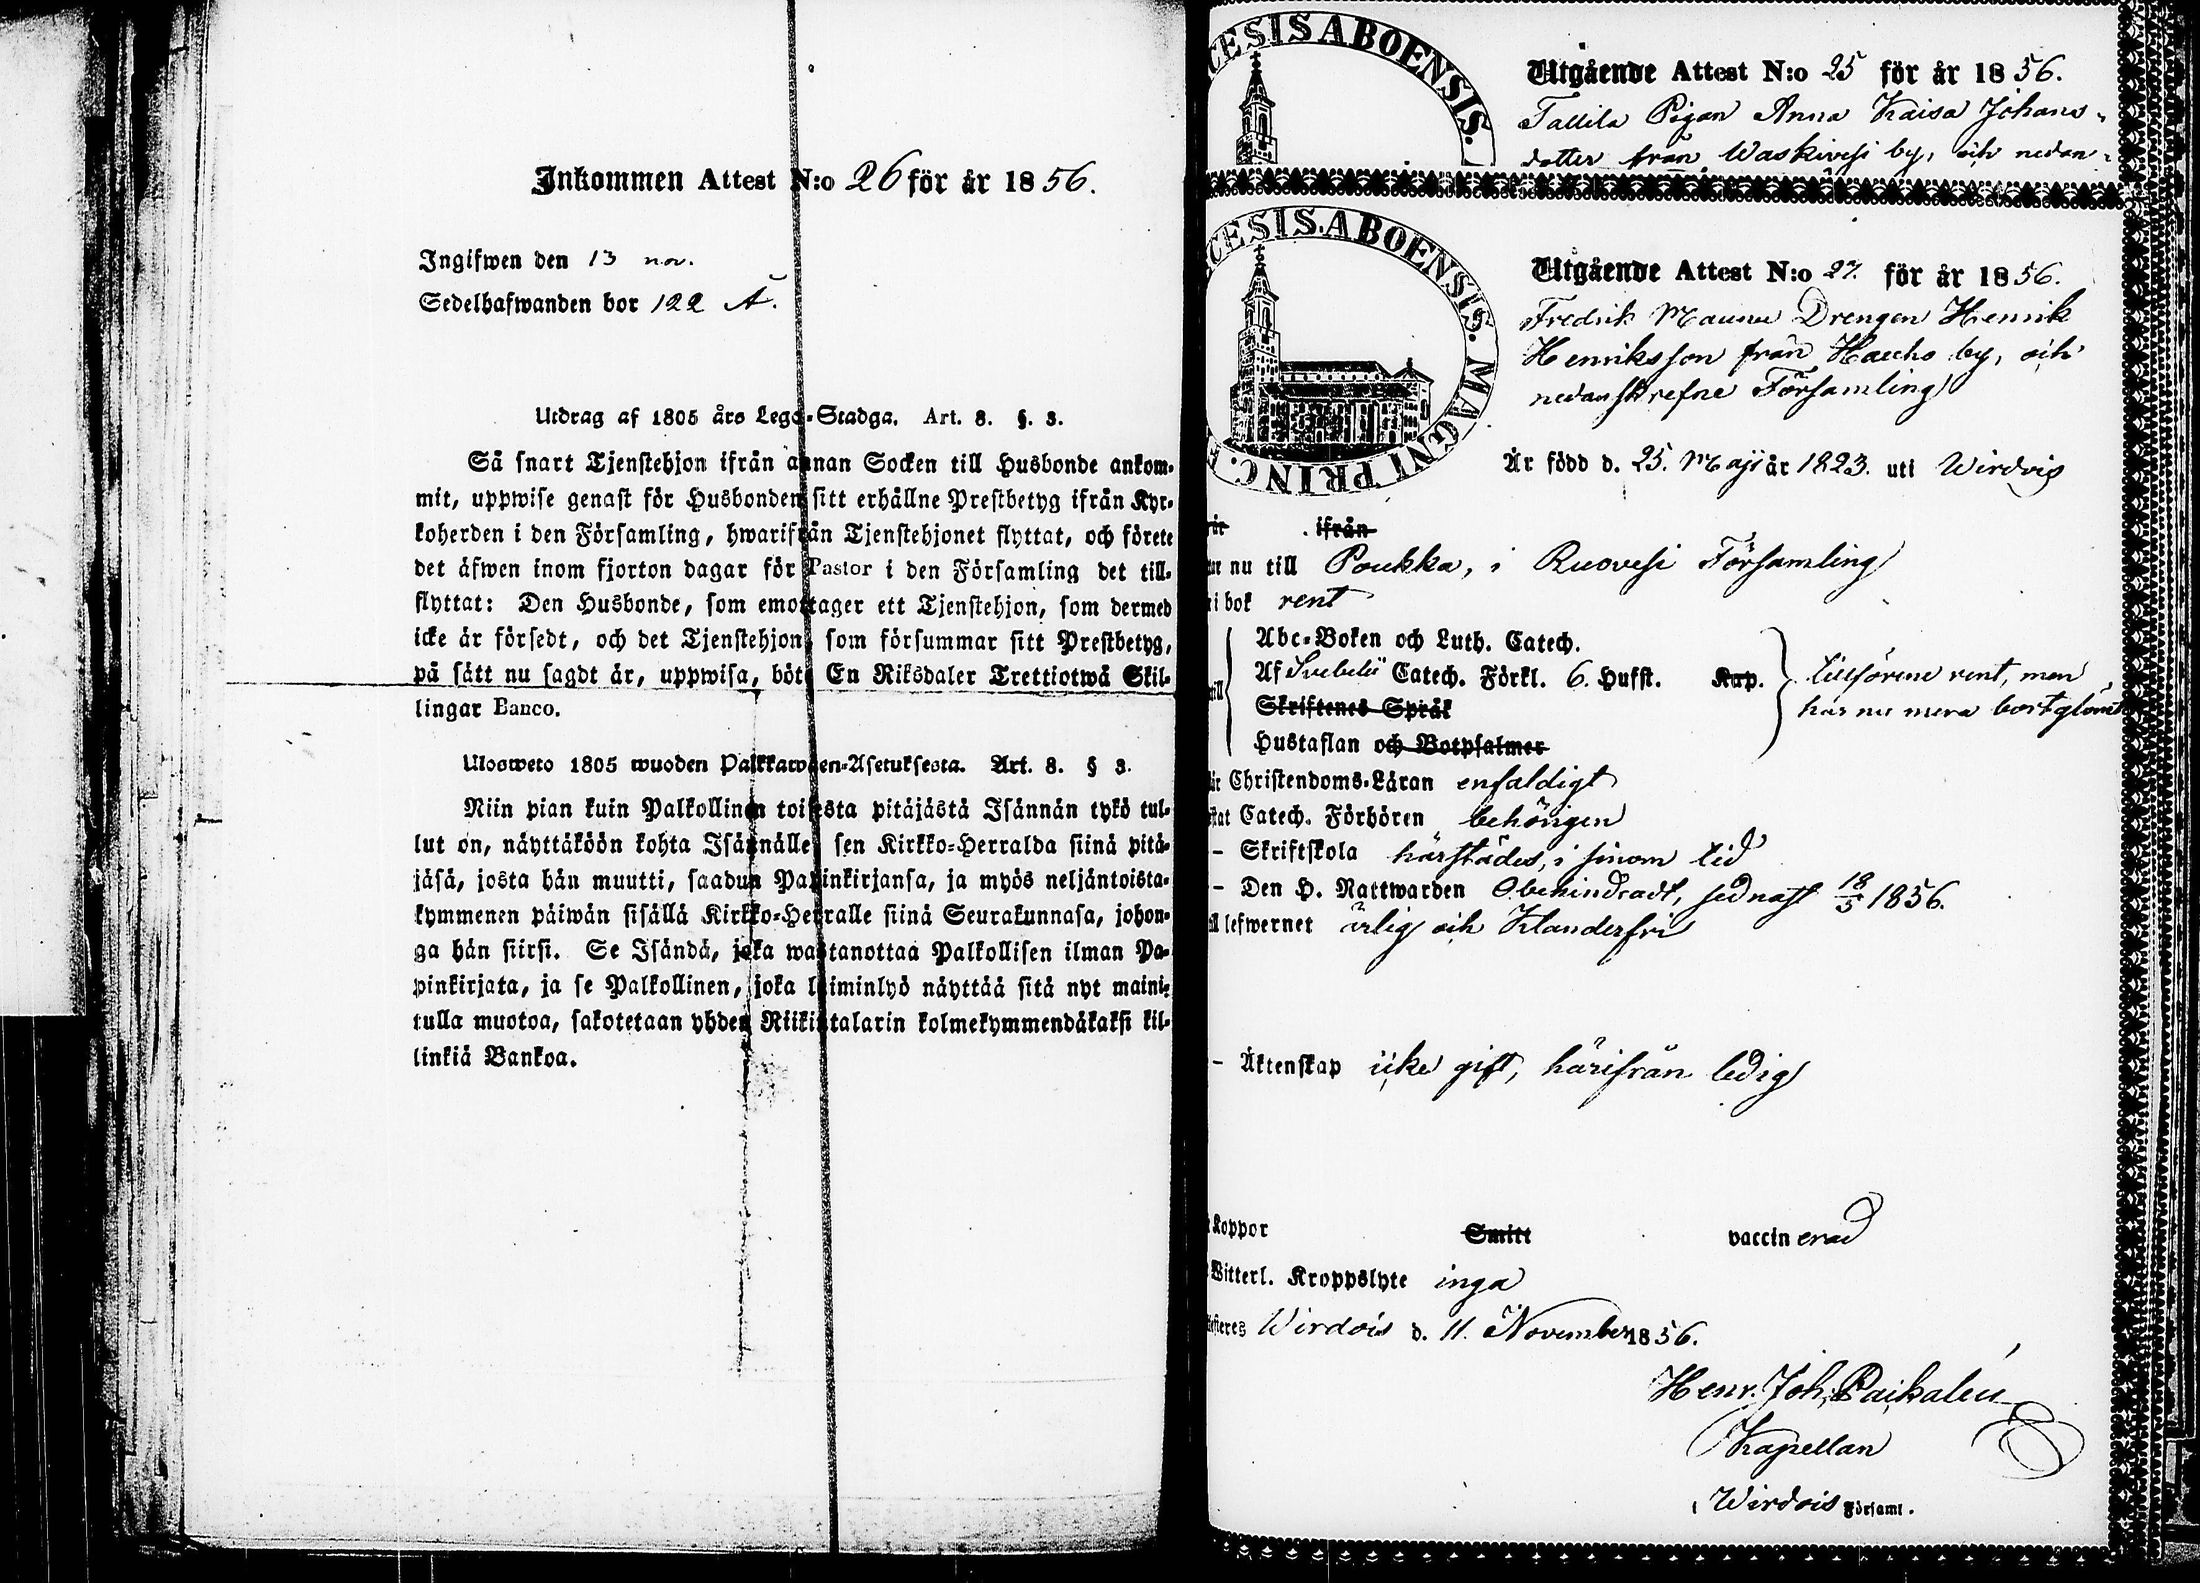 Inkommen Attest N:o 26 för år 1856.
Ingifwen den 13 nov.
Sedelhafwanden bor 122 A.
Utdrag af 1805 års Lego-Stadga. Art. 8. §. 3.
Så snart Tjenstehjon ifrån annan Socken till Husbonde ankom-
mit, uppwise genast för Husbonden sitt erhållne Prestbetyg ifrån Kyr-
koherden i den Församling, hwarifrån Tjenstehjonet flyttat, och förete
det äfwen inom fjorton dagar för Pastor i den Församling det till-
flyttat: Den Husbonde, som emottager ett Tjenstehjon, som dermed
icke är försedt, och det Tjenstehjon, som försummar sitt Prestbetyg,
på sätt nu sagdt är, uppwisa, böte En Riksdaler Trettiotwå Skil-
lingar Banco.
Ulosweto 1805 wuoden Palkkawäen-Asetuksesta. Art. 8. § 3.
Niin pian kuin Palkollinen toisesta pitäjästä Isännän tykö tul-
lut on, näyttäköön kohta Isännälle, sen Kirkko-Herralda siinä pitä-
jäsä, josta hän muutti, saadun Papinkirjansa, ja myös neljäntoista-
kymmenen päiwän sisällä Kirkko-Herralle siinä Seurakunnasa, johon-
ga hän siirsi. Se Isändä, joka wastanottaa Palkollisen ilman Pa-
pinkirjata, ja se Palkollinen, joka laiminlyö näyttää sitä nyt maini-
tulla muotoa, sakotetaan yhden Riikintalarin kolmekymmendäkaksi kil-
linkiä Bankoa.
CESIS ABOENSIS.
Utgående Attest N:o 25 för år 1856.
Tallila Pigan Anna Kaisa Johans-
dotter från Waskivesi by, och nedan-
CESIS ABOENSIS. MAGNI PRINC.
Utgående Attest N:o 27. för år 1856.
Fredrik Maunu Drengen Henrik
Henriksson från Hauho by, och
nedanskrefne Församling
Är född d. 25. Maji år 1823. uti Wirdois
ifrån
nu till Poukka, i Ruovesi Församling
i bok rent
Abc-Boken och Luth. Catech.
Af Svebelii Catech. Förkl. 6. Hufst. Kap.
Skriftenes Språk
Hustaflan och Botpsalmer
tillförene rent, men
har nu mera bortglömt
Christendoms-Läran enfaldigt
Catech. Förhören behörigen
- Skriftskola härstädes, i sinom tid
- Den H. Nattwarden Obehindradt, sednast 18/5 1856.
lefwernet ärlig och Klanderfri
- Äktenskap icke gift, härifrån ledig
Koppor Smitt vaccinerad
Witterl. Kroppslyte inga
Wirdois d. 11. November 1856.
Henr. Joh. Paikalén
Kapellan
i Wirdois Församl.